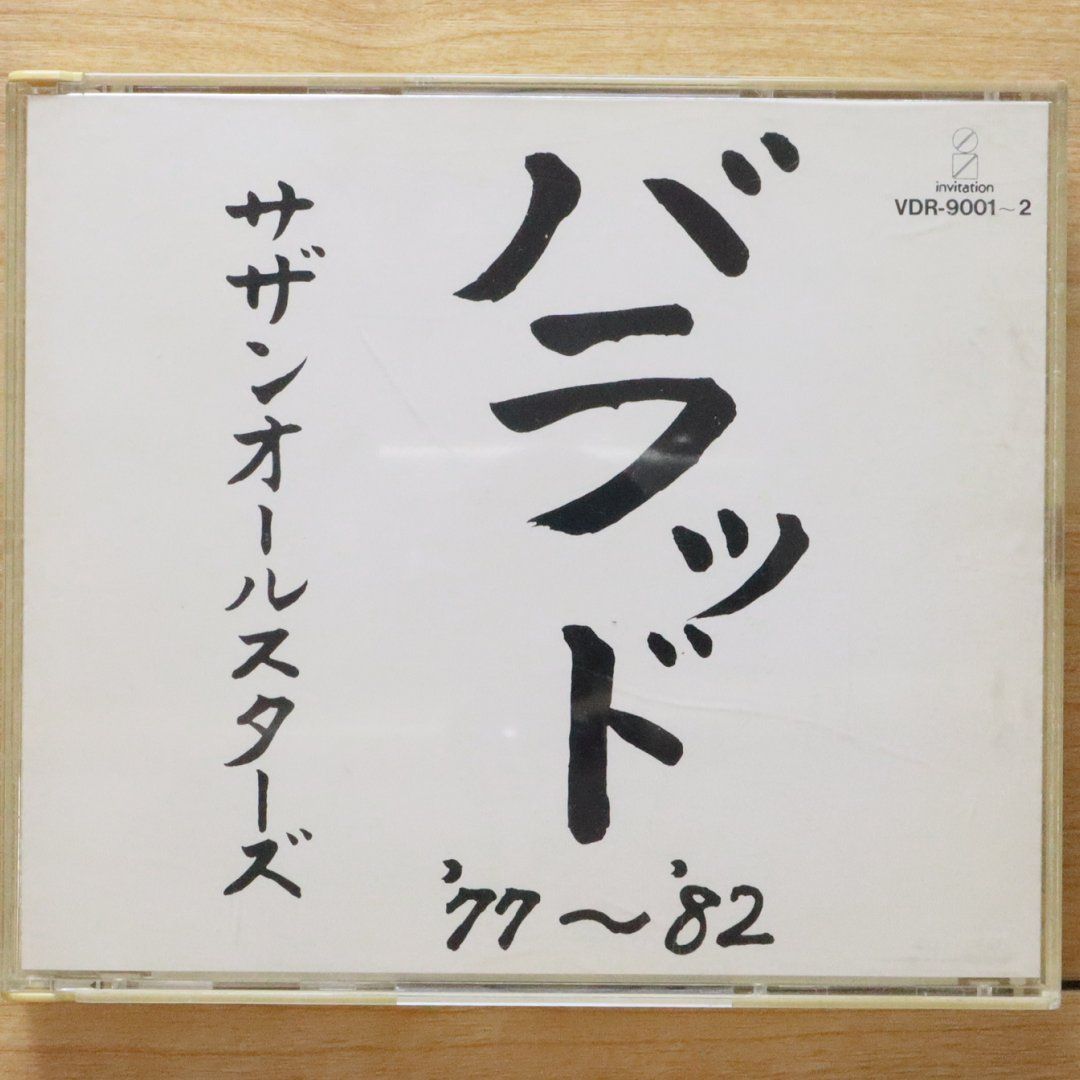 バラッド
'77～'82
サザンオールスターズ
invitation
VDR-9001～2